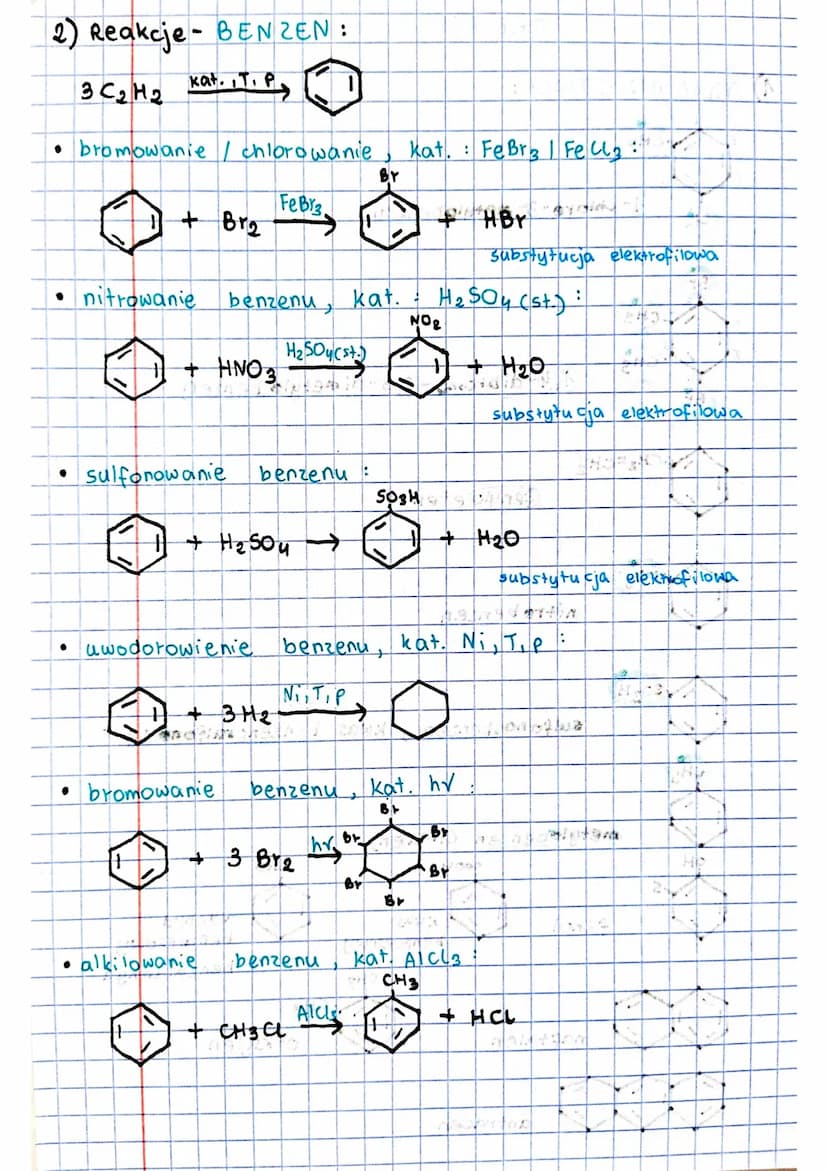 2) Reakcje - BENZEN :
3 C2H2 kat., T, p →
• bromowanie / chlorowanie, kat. : FeBr3 / FeCl3 :
Br
+ Br2 FeBr3 → + HBr
substytucja elektrofilowa
• nitrowanie benzenu, kat. : H2SO4 (st.) :
NO2
+ HNO3 H2SO4(st.) → + H2O
substytucja elektrofilowa
• sulfonowanie benzenu :
SO3H
+ H2SO4 → + H2O
substytucja elektrofilowa
• uwodorowienie benzenu, kat. Ni, T, p :
+ 3H2 Ni, T, p →
• bromowanie benzenu, kat. hν :
Br
+ 3 Br2 hν → Br Br
Br Br
Br
• alkilowanie benzenu, kat. AlCl3 :
CH3
+ CH3Cl AlCl3 → + HCl